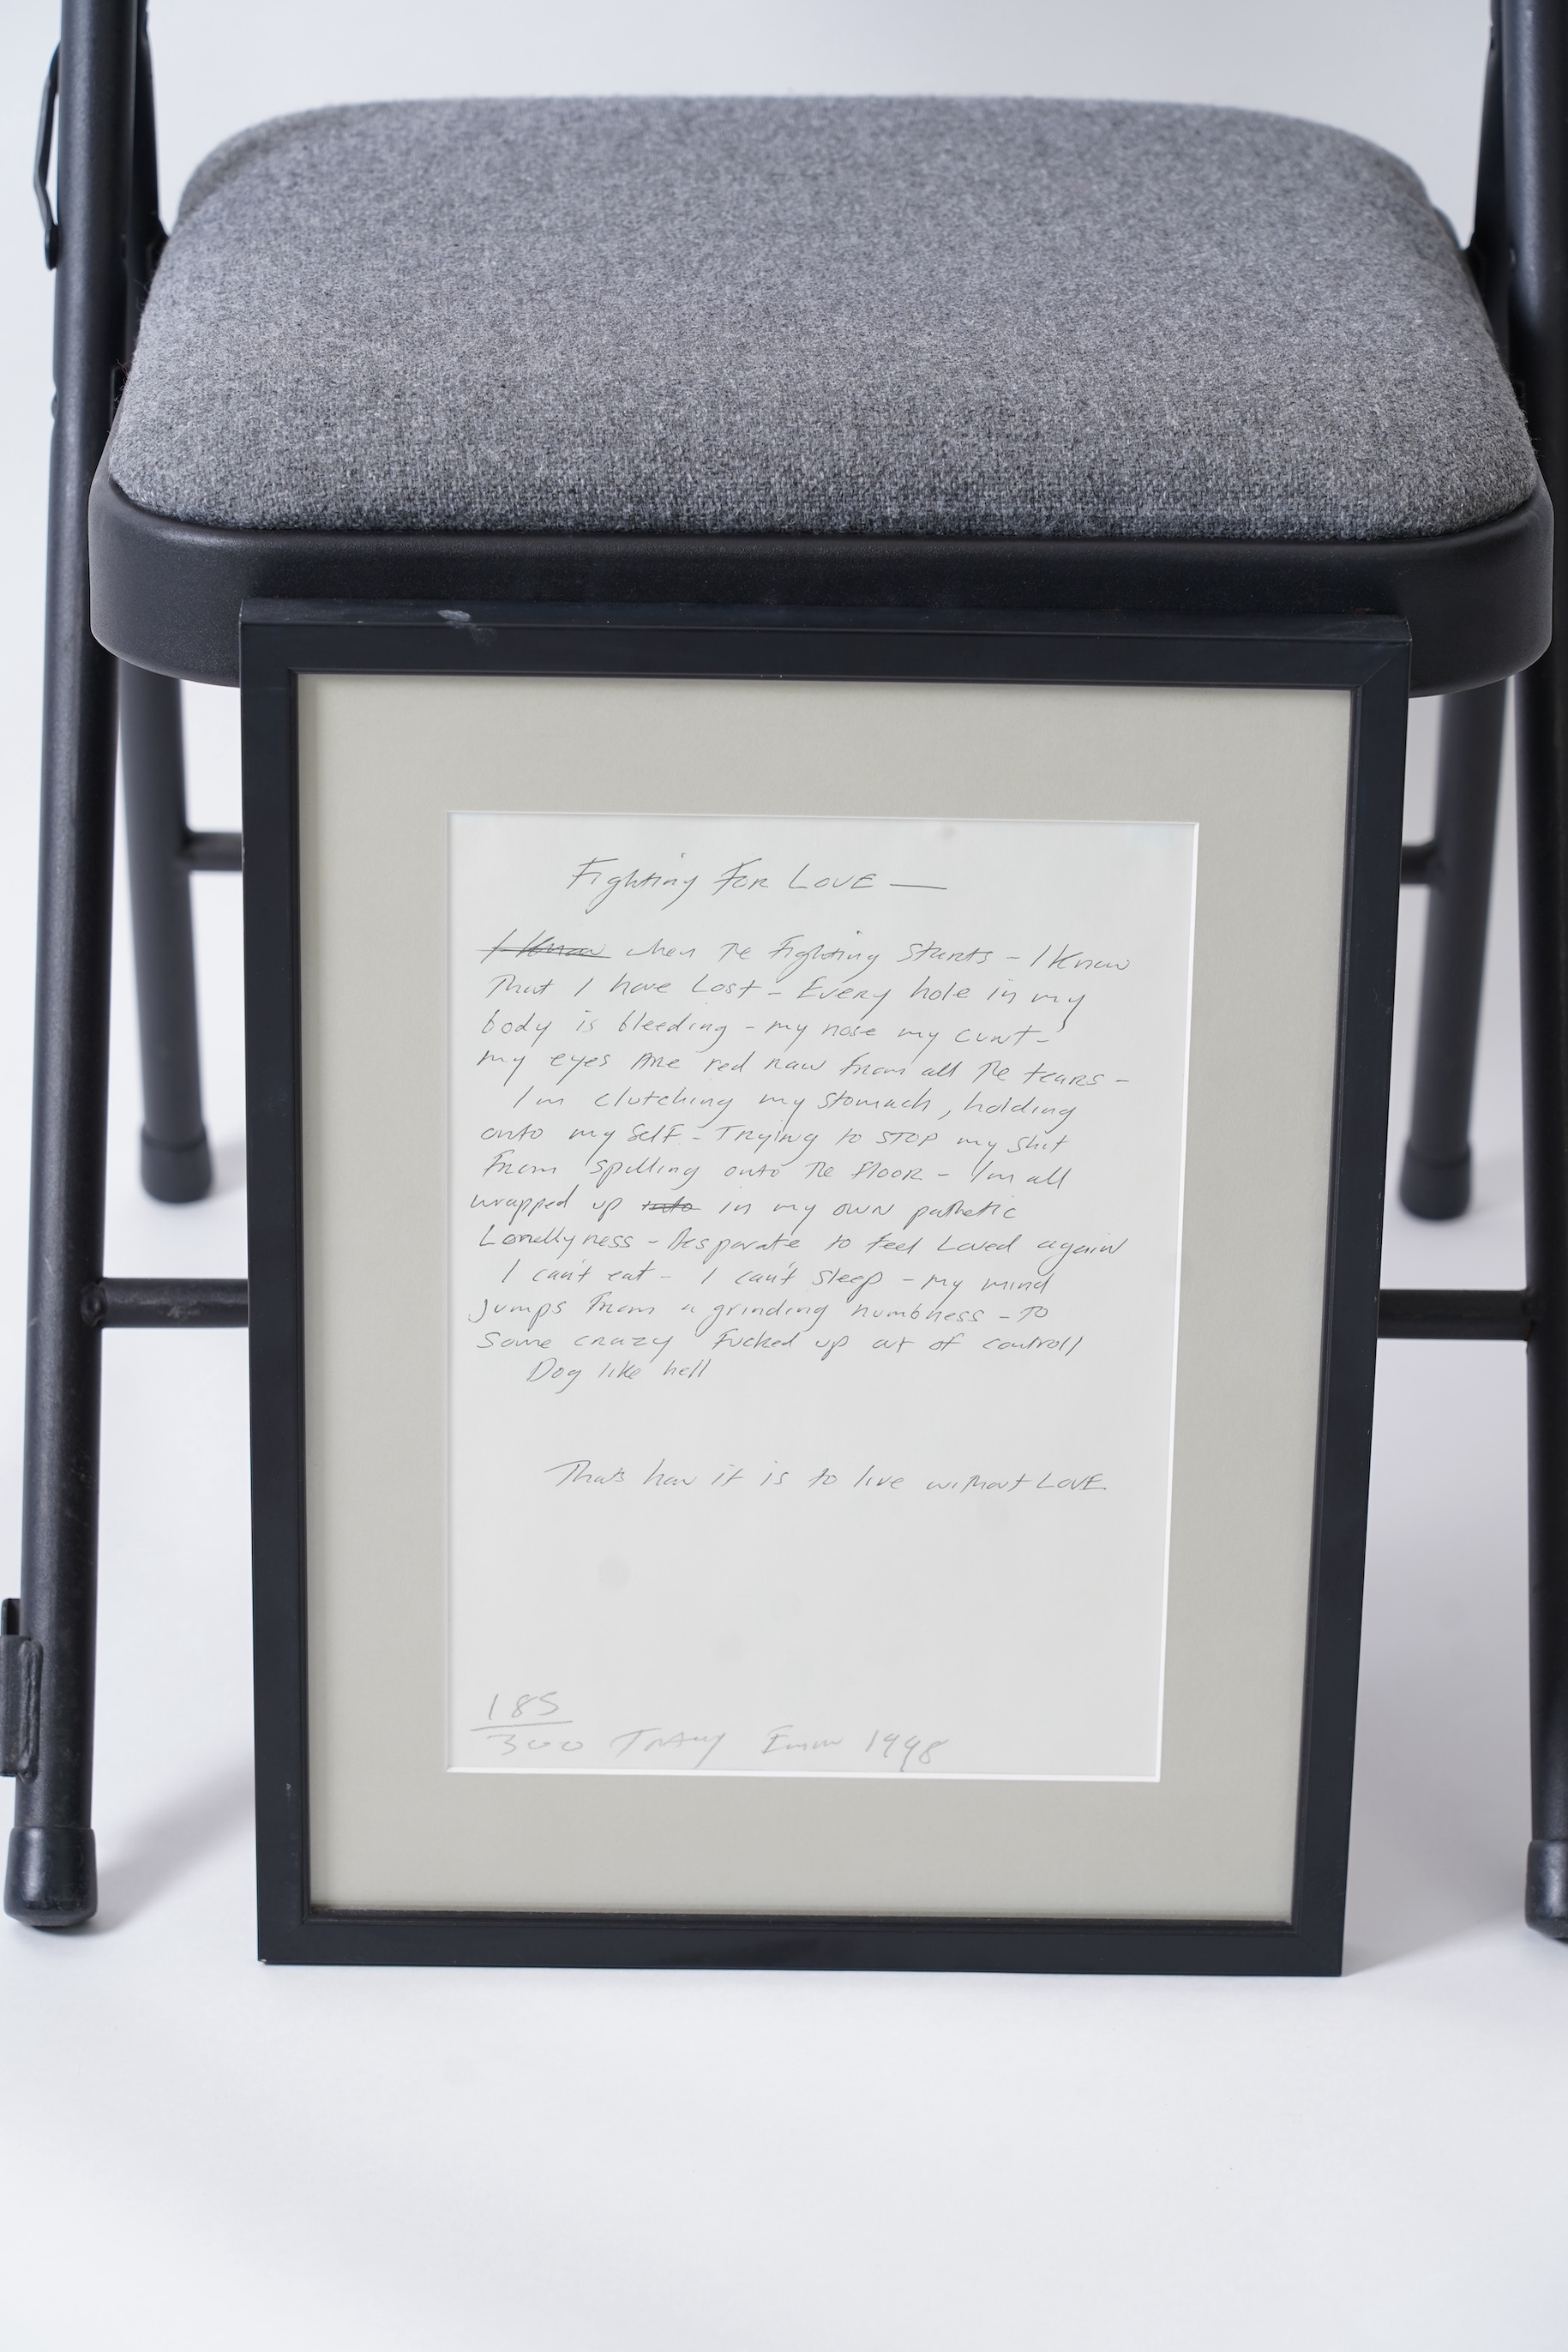 Fighting FOR LOVE —
I Know when The fighting Starts - I Know
That I have Lost - Every hole in my
body is bleeding - my nose my cunt -
my eyes ARE red raw from all The tears -
I'm clutching my stomach, holding
onto my Self - Trying to STOP my shit
from spilling onto The FLOOR - I'm all
wrapped up into in my OWN pathetic
Lonellyness - Desparate to feel Loved again
I can't eat - I can't sleep - my mind
jumps from a grinding numbness - TO
some crazy fucked up out of controll
Dog like hell
Thats how it is to live without LOVE
185
300 Tracey Emin 1998